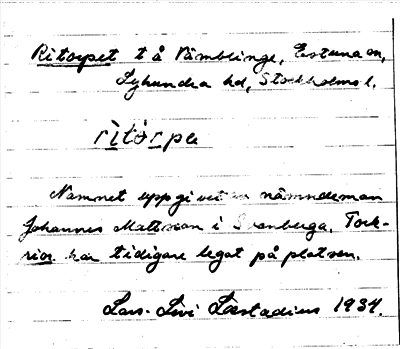 Ritorpet t å Vämblinge, Estuna sn,
Lyhundra hd, Stockholms l.
ritòrpa
Namnet uppgivet av nämndeman
Johannes Mattsson i Svanberga. Tork-
rior har tidigare legat på platsen.
Lars-Levi Læstadius 1934.